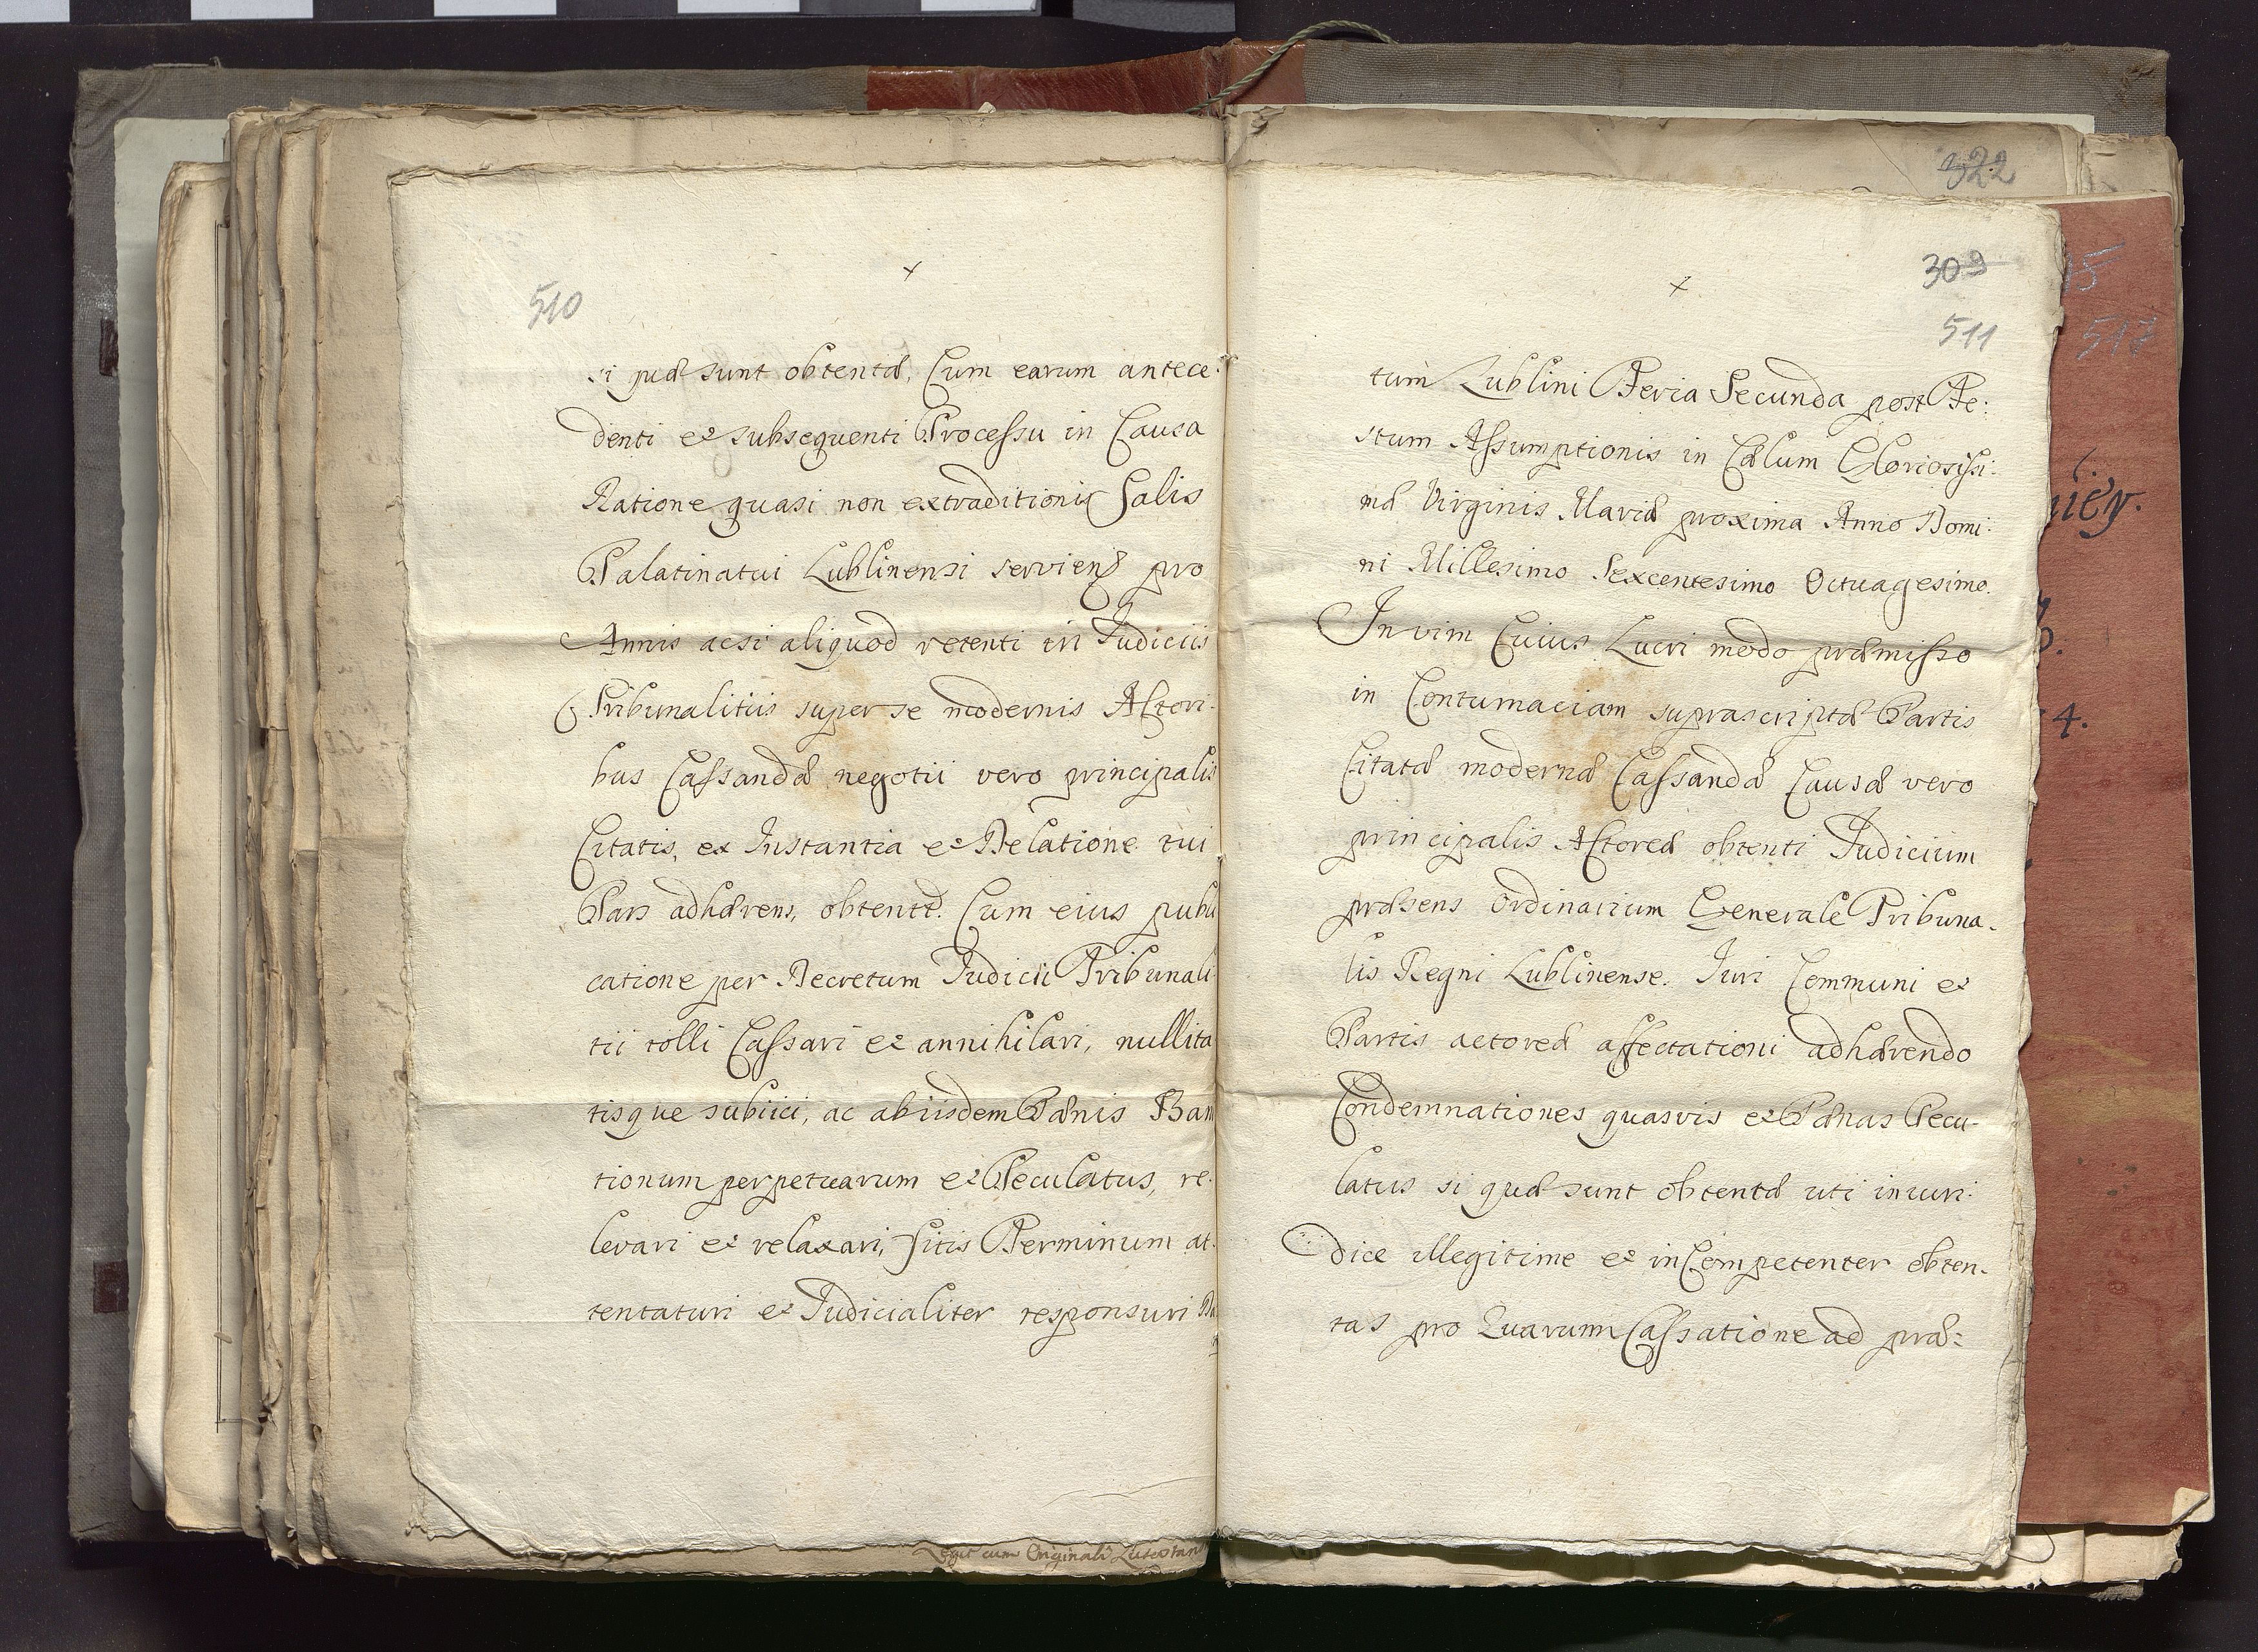 510
×
si quæ sunt obtentæ, Cum earum antece:
denti et subsequenti Processu in Causa
Ratione quasi non extraditionis Salis
Palatinatui Lublinensi serviens pro
Annis acsi aliquod retenti in Judiciis
Tribunalitiis super se modernis Actori:
bus Cassandæ negotii vero principalis
Citatis, ex Instantia et Delatione tui
Pars adhærens, obtent. Cum eius publi
catione per Decretum Judicii Tribunali
tii tolli Cassari et annihilari, nullita
tisque subiici, ac ab iisdem Pænis Ban
tionum perpetuarum et Peculatus, re:
levari et relaxari, sitis Terminum at:
tentaturi et Judicialiter responsuri Da
322
309
×
511
tum Lublini Feria Secunda post Fe:
stum Assumptionis in Cælum Gloriosissi:
mæ Virginis Mariæ proxima Anno Domi:
ni Millesimo Sexcentesimo Octuagesimo.
In vim Cuius Lucri modo præmisso
in Contumaciam suprascriptæ Partis
Citatæ modernæ Cassandæ Causæ vero
principalis Actoreæ obtenti Judicium
præsens Ordinarium Generale Tribuna-
lis Regni Lublinense. Juri Communi et
Partis actoreæ affectationi adhærendo
Condemnationes quasvis et Pænas Pecu-
latus si quæ sunt obtentæ uti iniuri:
dice illegitime et inCompetenter obten-
tas pro Quarum Cassatione ad præ:
cum Originali